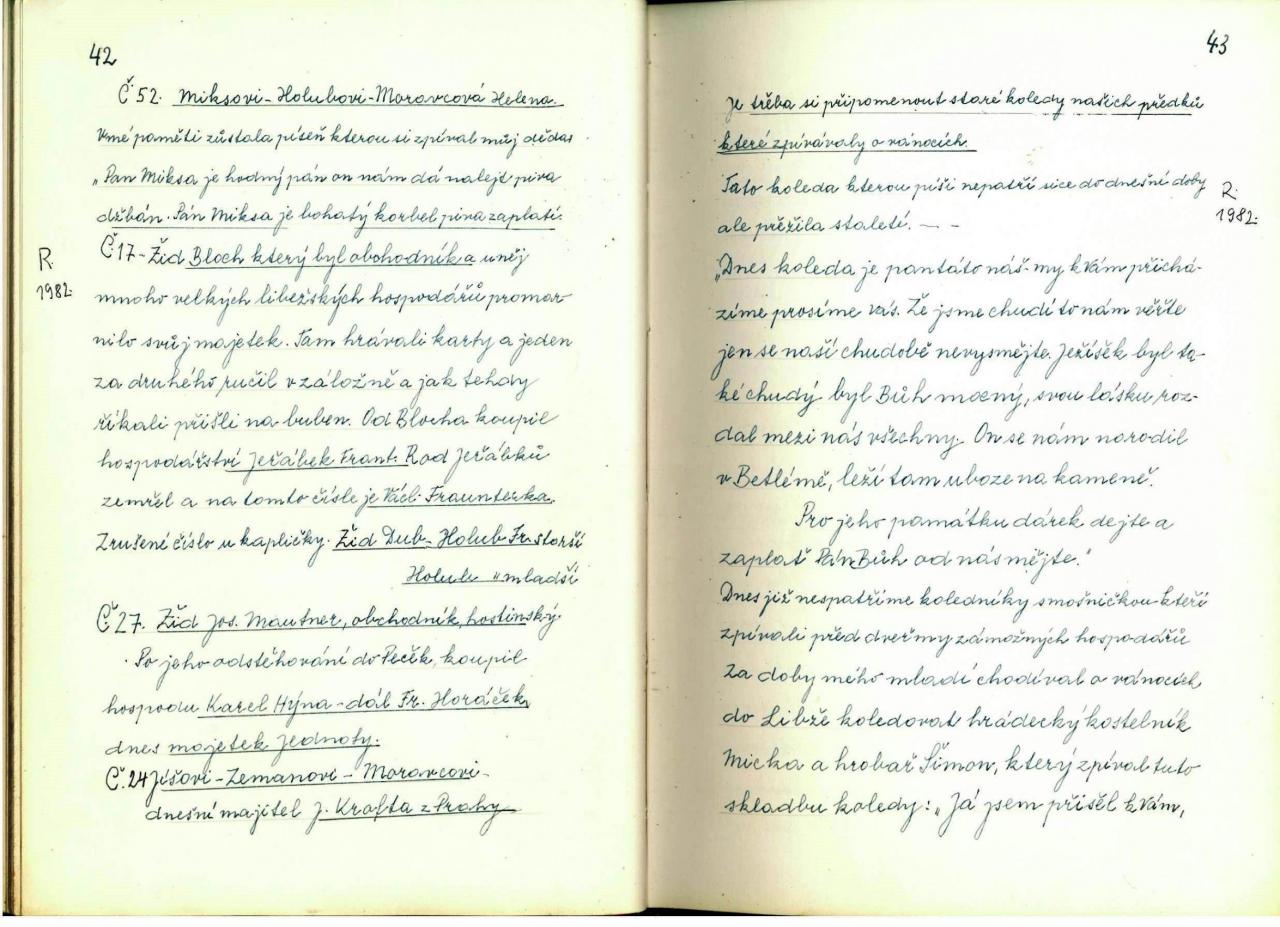 42
Č 52. Miksovi-Holubovi-Moravcová Helena.
V mé paměti zůstala píseň kterou si zpíval můj dědas
„Pan Miksa je hodný pán on nám dá nalejt piva
džbán. Pán Miksa je bohatý korbel piva zaplatí.
Č.17- Žid Bloch který byl obchodník a uněj
R.
1982.
mnoho velkých libežských hospodářů promar-
nilo svůj majetek. Tam hrávali karty a jeden
za druhého ručil v záložně a jak tehdy
říkali přišli na buben. Od Blocha koupil
hospodářství Jeřábek Frant. Rod Jeřábků
zemřel a na tomto čísle je Václ. Fraunterka.
Zrušené číslo u kapličky. Žid Dub- Holub Fr. starší
Holub „ mladší
Č.27. Žid Jos. Mautner, obchodník, hostinský.
Po jeho odstěhování do Peček, koupil
hospodu Karel Hýna-dál Fr. Horáček,
dnes majetek Jednoty.
Č.24 Jíšovi-Zemanovi-Moravcovi-
dnešní majitel J. Krafta z Prahy
43
Je třeba si připomenout staré koledy našich předků
které zpívávaly o vánocích.
Tato koleda kterou píši nepatří sice do dnešní doby
R.
1982.
ale přežila staletí. — -
„Dnes koleda je pantáto náš-my k Vám přichá-
zíme prosíme vás. Že jsme chudí to nám věřte
jen se naší chudobě nevysmějte. Ježíšek byl ta-
ké chudý byl Bůh mocný, svou lásku roz-
dal mezi nás všechny. On se nám narodil
v Betlémě, leží tam uboze na kameně.
Pro jeho památku dárek dejte a
zaplať Pán Bůh od nás mějte."
Dnes již nespatříme koledníky s mošničkou-kteří
zpívali před dveřmy zámožných hospodářů
Za doby mého mladí chodíval o vánocích
do Libže koledovat hrádecký kostelník
Micka a hrobař Šimon, který zpíval tuto
skladbu koledy: „Já jsem přišel k Vám,